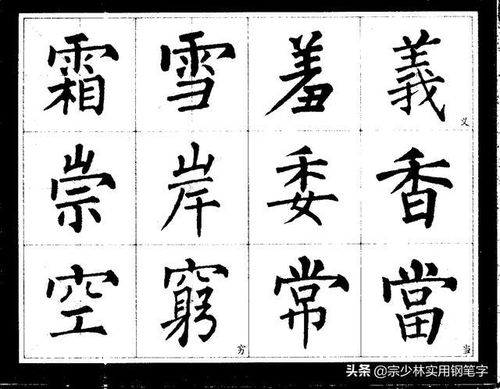 霜 雪 羞 義 义
崇 岸 委 香
空 窮 穷 常 當 当
头条 @宗少林实用钢笔字